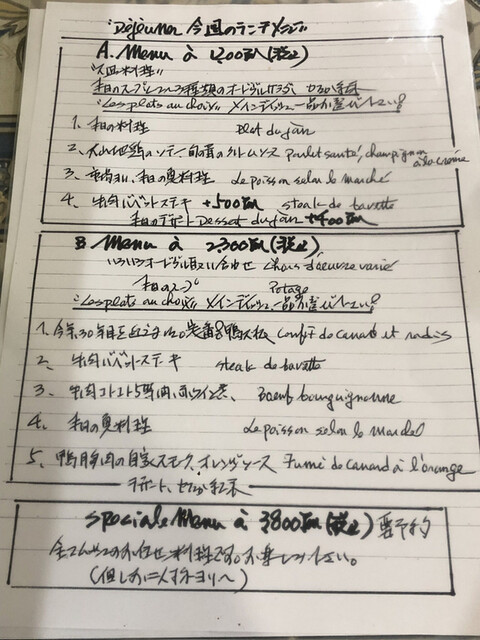 "Déjeuner 今週のランチメニュー"
A. Menu à 1,200円(税込)
本日のスープ 又は 3種類のオードブル
"Les plats au choix" メインディッシュ一品お選び下さい!
1. 本日の料理 Plat du jour
2. 大山地鶏のソテー 茸のクリームソース poulet sauté, champignon à la crème
3. 本日の魚料理 Le poisson selon le marché
4. 牛肉バベットステーキ +500円 steak de bavette
本日のデザート Dessert du jour +400円
B. Menu à 2,300円(税込)
いろいろオードブル取り合わせ Hors d'oeuvre varié
本日のスープ Potage
"Les plats au choix" メインディッシュ一品お選び下さい!
1. 今年30年目を Confit de canard et radis
2. 牛肉バベットステーキ steak de bavette
3. 牛肉 Boeuf bourguignonne
4. 本日の魚料理 Le poisson selon le marché
5. 鴨胸肉の自家スモーク、オレンジソース Fumé de canard à l'orange
デザート、
speciale Menu à 3800円(税込) 要予約
お任せ料理です。お楽しみ下さい。
(但しお二人様ヨリ〜)